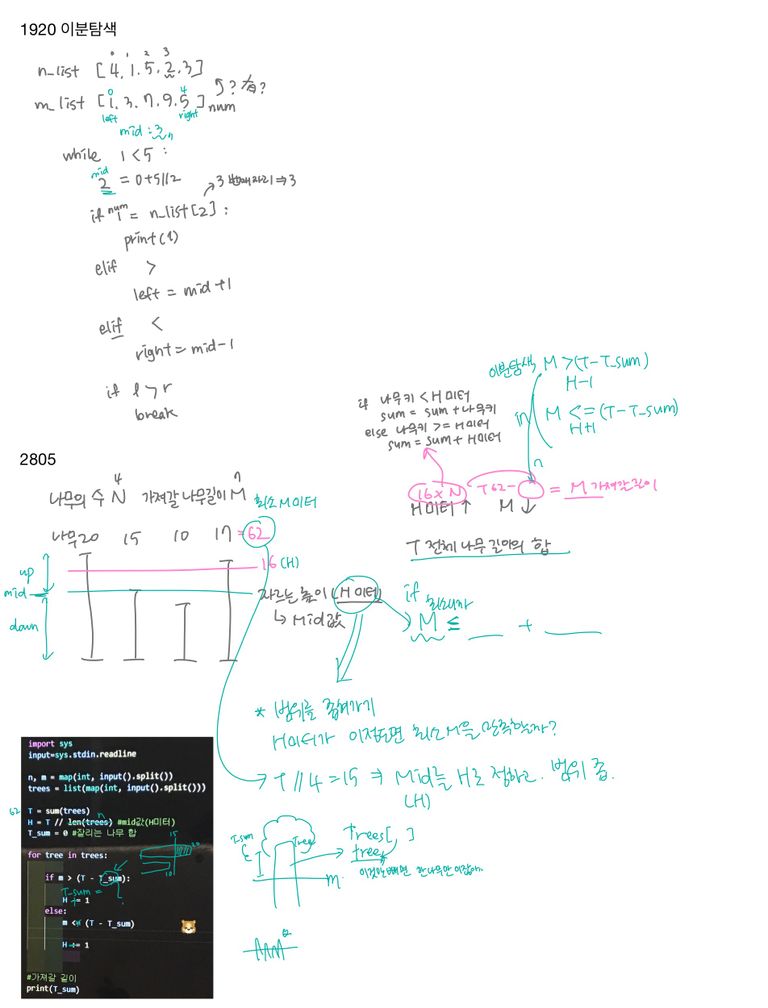 1920 이분탐색
0 1 2 3
n_list [4, 1, 5, 2, 3]
0 4
m_list [1, 3, 7, 9, 5] num ? 有?
left right
mid : 3
while 1 < 5 :
mid
2 = 0+5//2
3번째자리 ⇒ 3
if num = n_list[2] :
print(1)
elif >
left = mid+1
elif <
right = mid-1
if l > r
break
이분탐색 M > (T-T_sum)
H-1
M <= (T-T_sum)
H+1
if 나무키 < H미터
sum = sum + 나무키
else 나무키 >= H미터
sum = sum + H미터
2805
4
나무의 수 N 가져갈 나무길이 M 최소 M미터
16 x N T 62- = M 가져갈길이
H미터 ↑ M ↓
나무 20 15 10 17 = 62
T 전체 나무 길이의 합
16 (H)
up
mid
down
자르는 높이 (H 미터)
↳ Mid값
if
M ≤ __ + __
* 범위를 좁혀가기
H미터가 이정도면 최소M을 만족할까?
→ T // 4 = 15 ⇒ Mid를 H로 정하고. 범위 좁.
(H)
import sys
input=sys.stdin.readline
n, m = map(int, input().split())
trees = list(map(int, input().split()))
62 T = sum(trees)
n
H = T // len(trees) #mid값(H미터)
T_sum = 0 #잘리는 나무 합
15
20
10
for tree in trees:
if m > (T - T_sum):
T_sum =
H -= 1
else:
m <= (T - T_sum)
H += 1
#가져갈 길이
print(T_sum)
T_sum
Tree
trees[ ]
tree
m